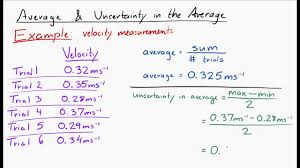 Average & Uncertainty in the Average
Example: velocity measurements
Velocity
Trial 1 0.32ms⁻¹
Trial 2 0.35ms⁻¹
Trial 3 0.28ms⁻¹
Trial 4 0.37ms⁻¹
Trial 5 0.29ms⁻¹
Trial 6 0.34ms⁻¹
average = sum / # trials
average = 0.325ms⁻¹
uncertainty in average = max-min / 2
= 0.37ms⁻¹-0.28ms⁻¹ / 2
= 0.